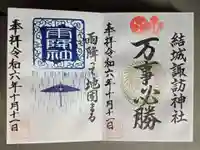 結城諏訪神社
万事必勝
奉拝 令和六年十月十一日
雨降って地固まる
奉拝 令和六年十月十一日